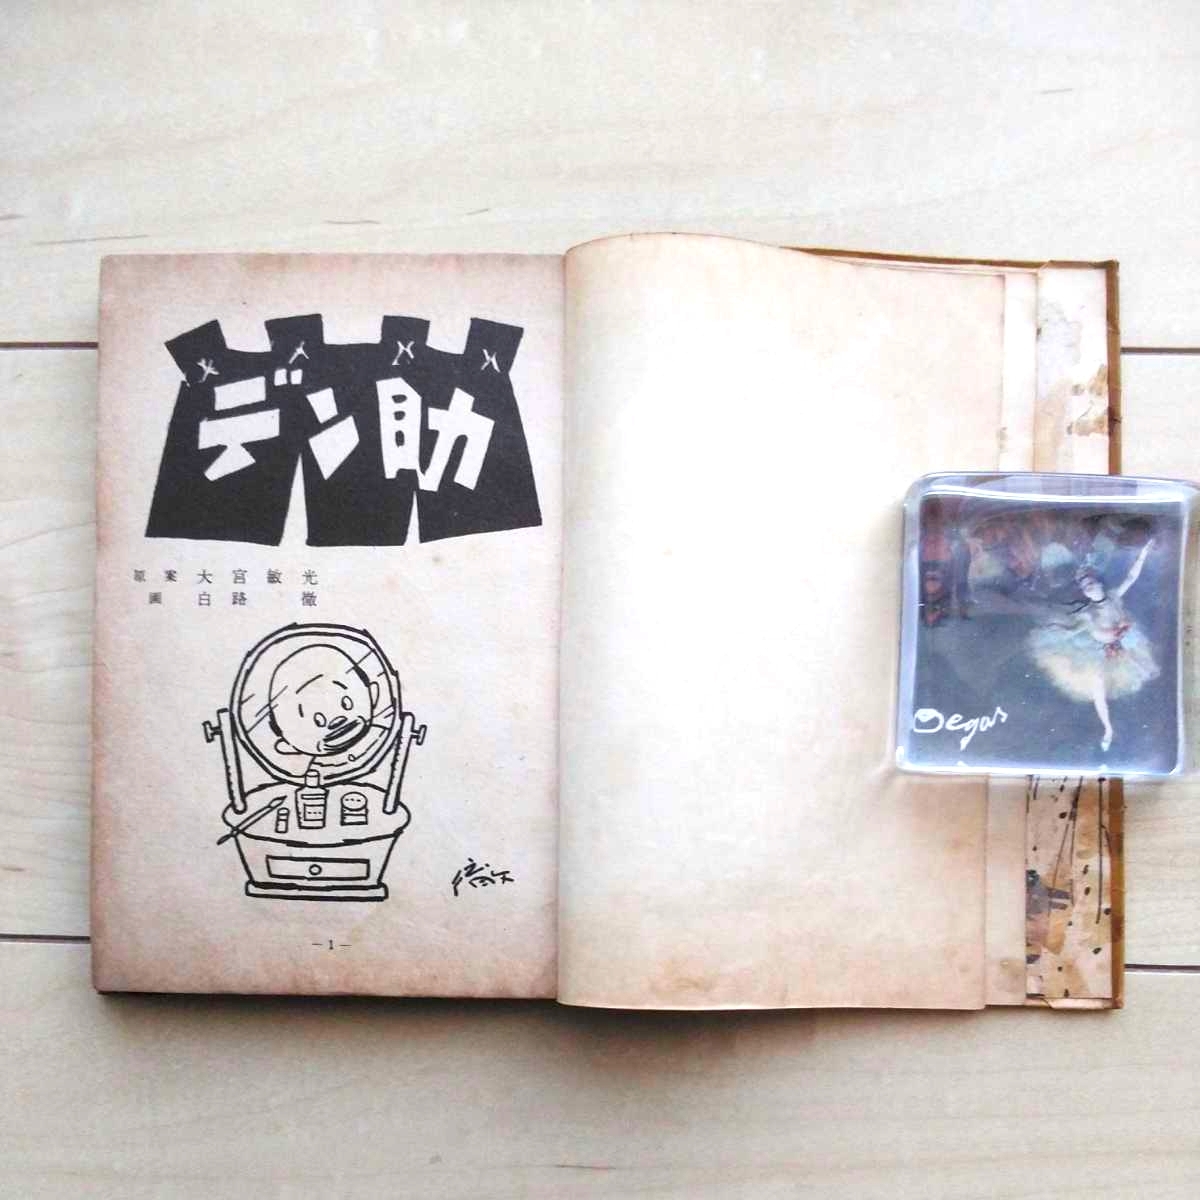 デン助
原案 大宮敏光
画 白路 徹
徹
—1—
Degas